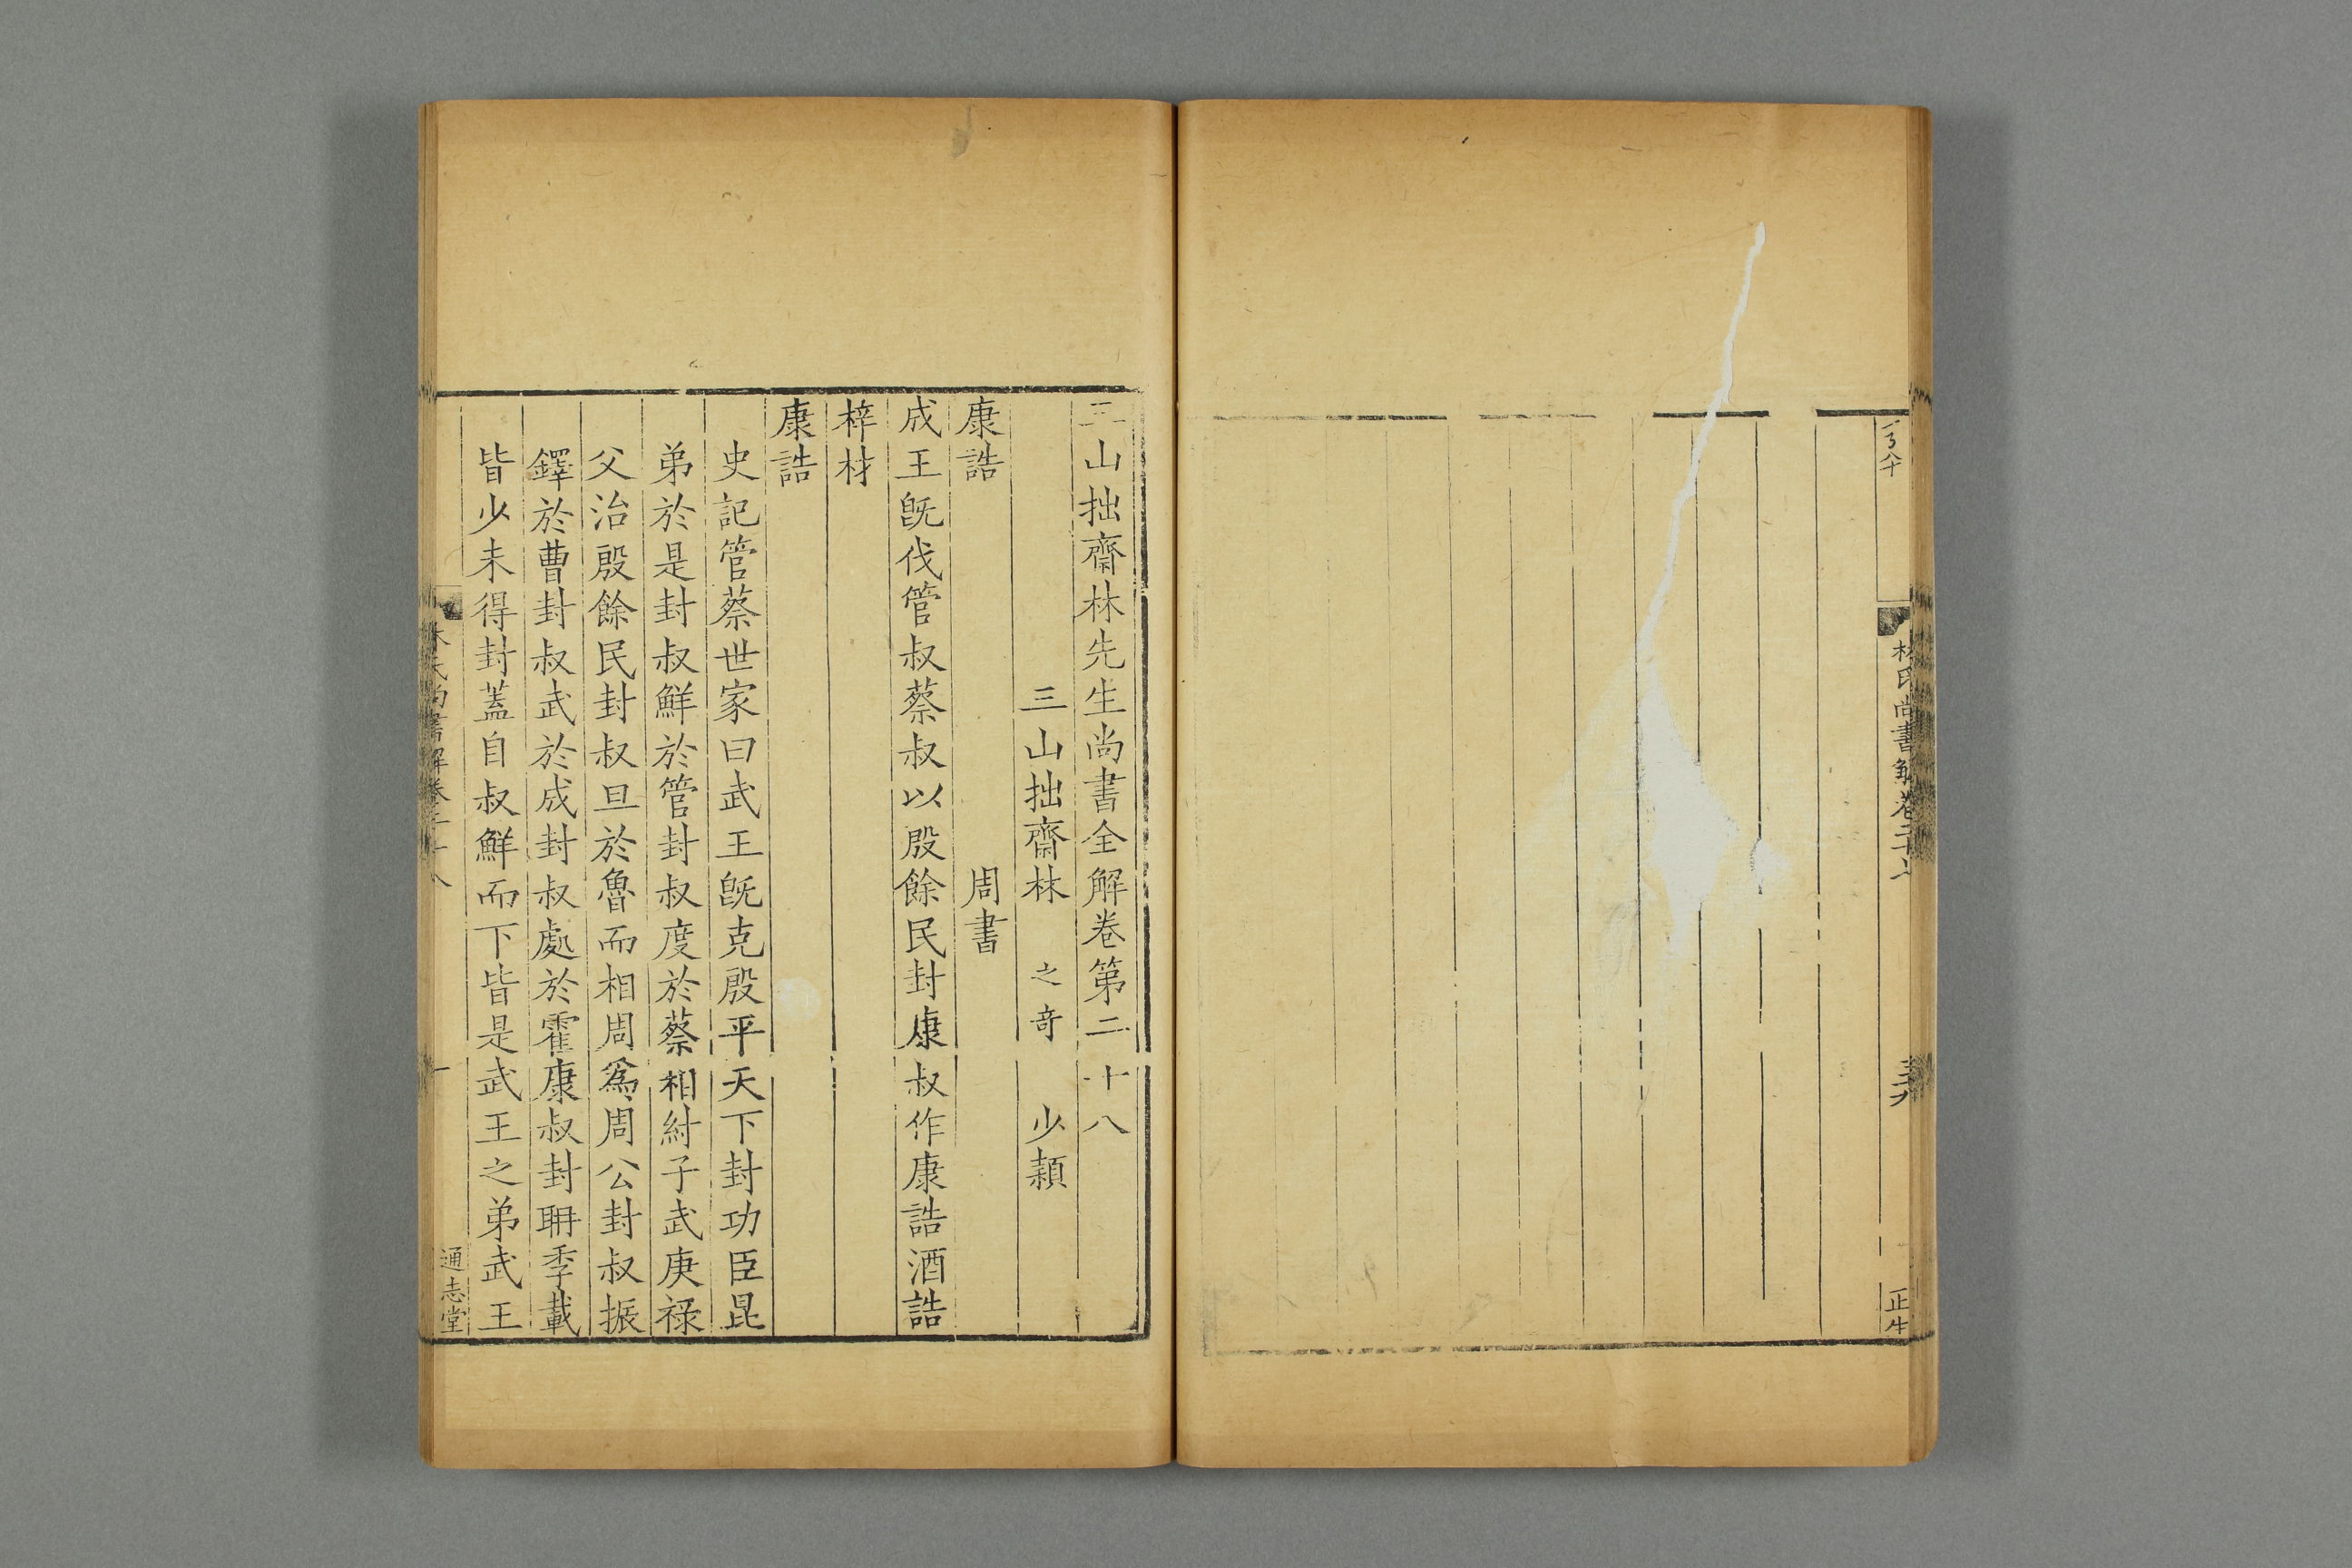 林氏尚書解卷二十
三山拙齋林先生尚書全解卷第二十八
三山拙齋林 之奇 少穎
康誥 周書
成王旣伐管叔蔡叔以殷餘民封康叔作康誥酒誥
梓材
康誥
史記管蔡世家曰武王旣克殷平天下封功臣昆
弟於是封叔鮮於管封叔度於蔡相紂子武庚祿
父治殷餘民封叔旦於魯而相周爲周公封叔振
鐸於曹封叔武於成封叔處於霍康叔封聃季載
皆少未得封蓋自叔鮮而下皆是武王之弟武王
林氏尚書解卷二十八 一 通志堂